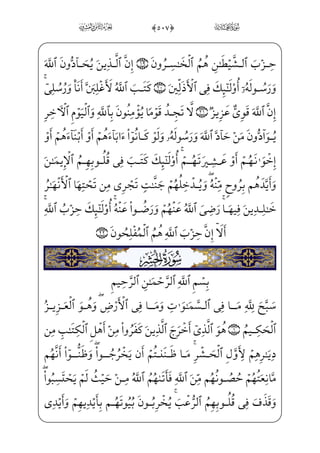 سُورَةُ المُجَادلَةِ ﴿٥٠٧﴾ الجُزْءُ الثَّامِنُ وَالعِشْرُونَ
حِزْبَ ٱلشَّيْطَٰنِ هُمُ ٱلْخَٰسِرُونَ ۝١٩ إِنَّ ٱلَّذِينَ يُحَآدُّونَ ٱللَّهَ
وَرَسُولَهُۥٓ أُو۟لَٰٓئِكَ فِى ٱلْأَذَلِّينَ ۝٢٠ كَتَبَ ٱللَّهُ لَأَغْلِبَنَّ أَنَا۠ وَرُسُلِىٓ ۚ
إِنَّ ٱللَّهَ قَوِىٌّ عَزِيزٌ ۝٢١ لَّا تَجِدُ قَوْمًا يُؤْمِنُونَ بِٱللَّهِ وَٱلْيَوْمِ ٱلْءَاخِرِ
يُوَآدُّونَ مَنْ حَآدَّ ٱللَّهَ وَرَسُولَهُۥ وَلَوْ كَانُوٓا۟ ءَابَآءَهُمْ أَوْ أَبْنَآءَهُمْ أَوْ
إِخْوَٰنَهُمْ أَوْ عَشِيرَتَهُمْ ۚ أُو۟لَٰٓئِكَ كَتَبَ فِى قُلُوبِهِمُ ٱلْإِيمَٰنَ
وَأَيَّدَهُم بِرُوحٍ مِّنْهُ ۖ وَيُدْخِلُهُمْ جَنَّٰتٍ تَجْرِى مِن تَحْتِهَا ٱلْأَنْهَٰرُ
خَٰلِدِينَ فِيهَا ۚ رَضِىَ ٱللَّهُ عَنْهُمْ وَرَضُوا۟ عَنْهُ ۚ أُو۟لَٰٓئِكَ حِزْبُ ٱللَّهِ ۚ
أَلَآ إِنَّ حِزْبَ ٱللَّهِ هُمُ ٱلْمُفْلِحُونَ ۝٢٢
سُورَةُ الحَشْرِ
بِسْمِ ٱللَّهِ ٱلرَّحْمَٰنِ ٱلرَّحِيمِ
سَبَّحَ لِلَّهِ مَا فِى ٱلسَّمَٰوَٰتِ وَمَا فِى ٱلْأَرْضِ ۖ وَهُوَ ٱلْعَزِيزُ
ٱلْحَكِيمُ ۝١ هُوَ ٱلَّذِىٓ أَخْرَجَ ٱلَّذِينَ كَفَرُوا۟ مِنْ أَهْلِ ٱلْكِتَٰبِ مِن
دِيَٰرِهِمْ لِأَوَّلِ ٱلْحَشْرِ ۚ مَا ظَنَنتُمْ أَن يَخْرُجُوا۟ ۖ وَظَنُّوٓا۟ أَنَّهُم
مَّانِعَتُهُمْ حُصُونُهُم مِّنَ ٱللَّهِ فَأَتَىٰهُمُ ٱللَّهُ مِنْ حَيْثُ لَمْ يَحْتَسِبُوا۟ ۖ
وَقَذَفَ فِى قُلُوبِهِمُ ٱلرُّعْبَ ۚ يُخْرِبُونَ بُيُوتَهُم بِأَيْدِيهِمْ وَأَيْدِى